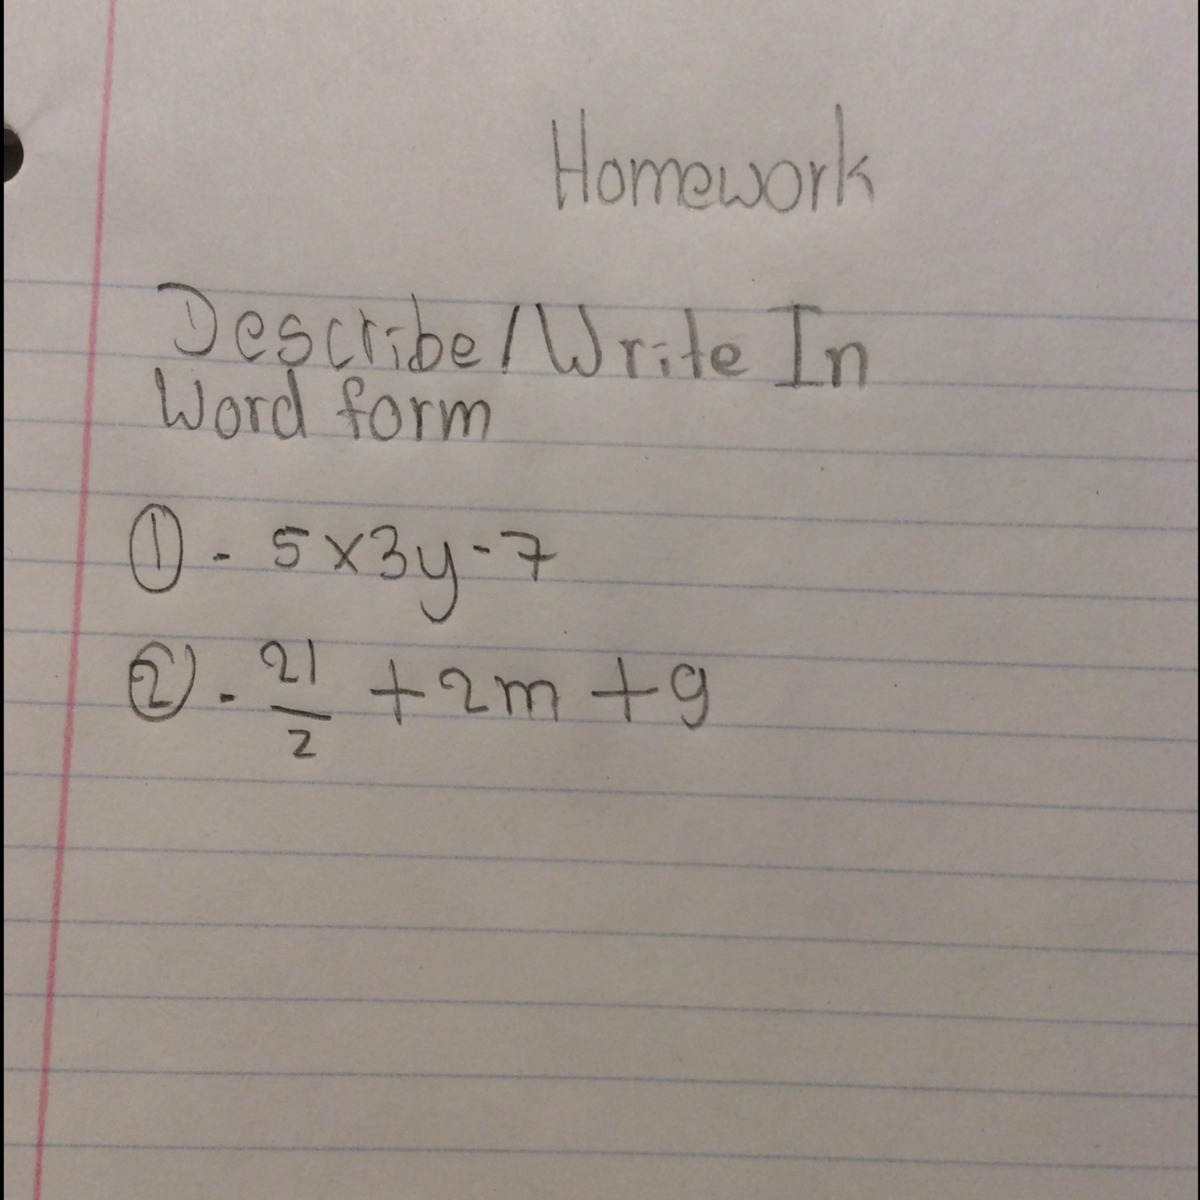 Homework
Describe/Write In
Word form
① - 5x3y-7
② - 21/2 + 2m + 9